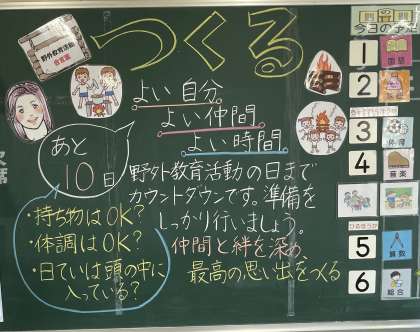 野外教育活動
合言葉
つくる
よい自分。
よい仲間。
よい時間。
あと
10日
野外教育活動の日まで
カウントダウンです。準備を
しっかり行いましょう。
仲間と絆を深め、
最高の思い出をつくる
・持ち物はOK?
・体調はOK?
・日ていは頭の中に
入っている?
今日の予定
1
国語
2
3
体育
4
音楽
5
算数
6
総合